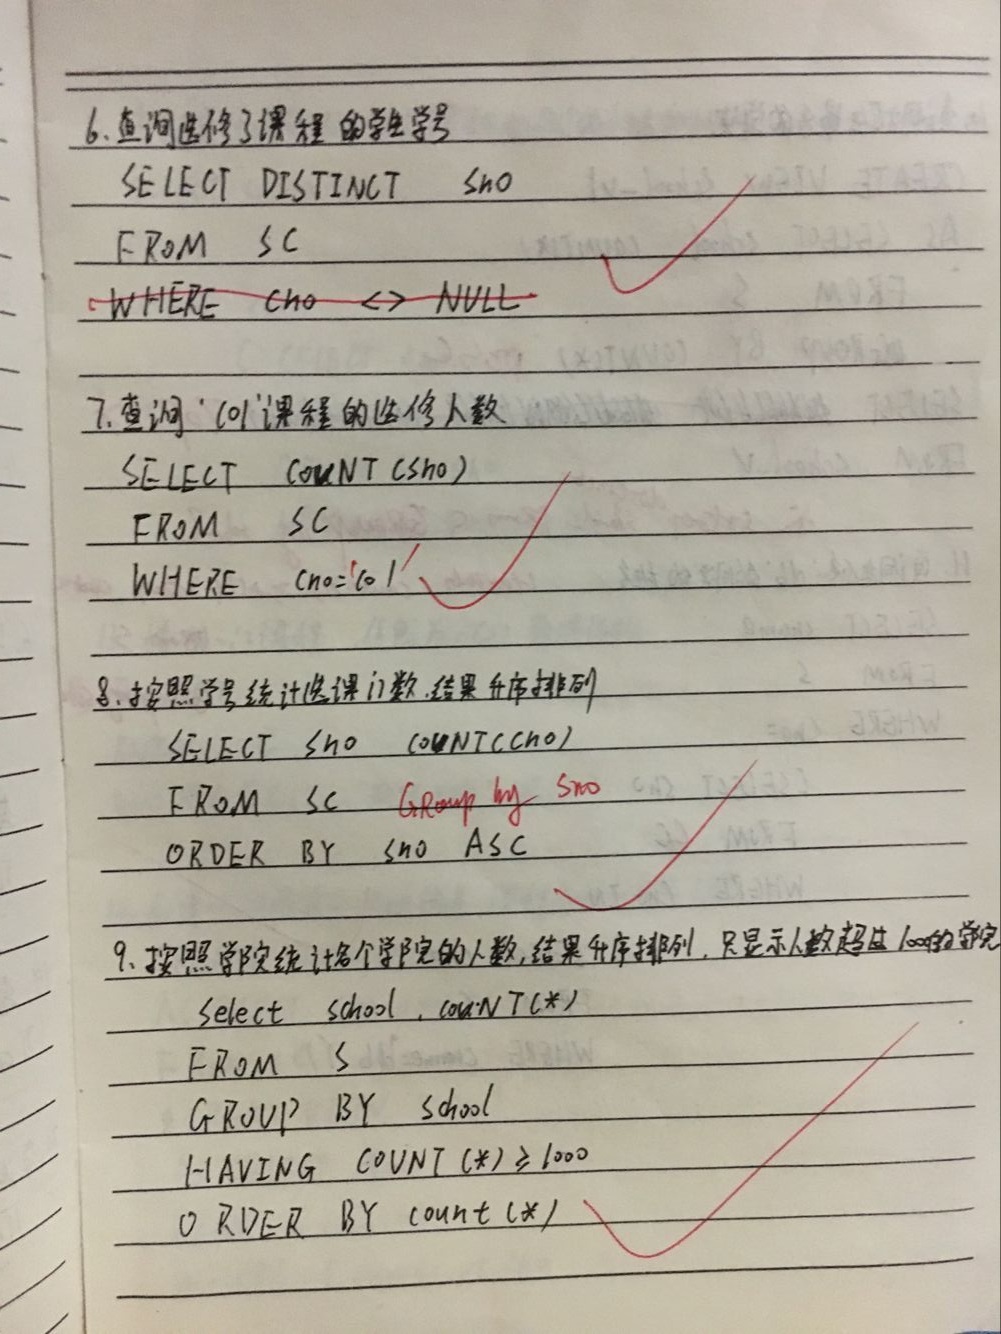 6、查询选修了课程的学生学号
SELECT DISTINCT sno
FROM SC
WHERE cno <> NULL
7.查询'C01'课程的选修人数
SELECT COUNT(sno)
FROM SC
WHERE cno='C01'
8.按照学号统计选课门数.结果升序排列
SELECT sno COUNT(cno)
FROM SC GRoup by sno
ORDER BY sno ASC
9、按照学院统计各个学院的人数,结果升序排列.只显示人数超过1000的学院
Select school,couNT(*)
FROM S
GROUP BY school
HAVING COUNT(*)≥1000
ORDER BY count(*)